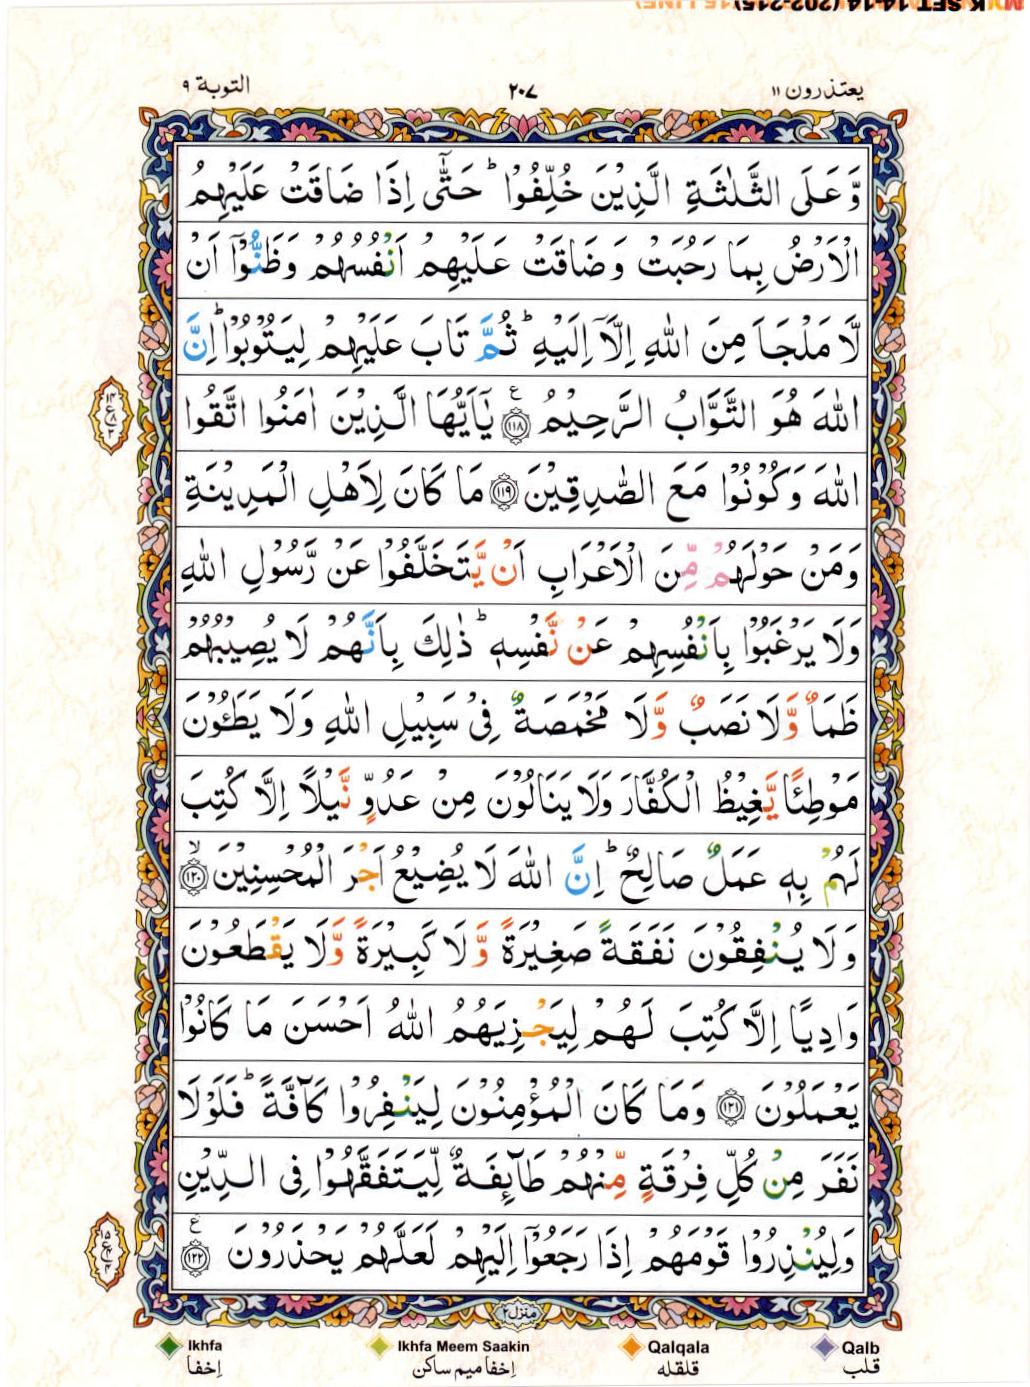 التوبة ٩
٢٠٧
يعتذرون ١١
وَّعَلَى الثَّلٰثَةِ الَّذِيْنَ خُلِّفُوْا ؕ حَتّٰٓى اِذَا ضَاقَتْ عَلَيْهِمُ
الْاَرْضُ بِمَا رَحُبَتْ وَضَاقَتْ عَلَيْهِمْ اَنْفُسُهُمْ وَظَنُّوْۤا اَنْ
لَّا مَلْجَاَ مِنَ اللّٰهِ اِلَّاۤ اِلَيْهِ ؕ ثُمَّ تَابَ عَلَيْهِمْ لِيَتُوْبُوْا ؕ اِنَّ
اللّٰهَ هُوَ التَّوَّابُ الرَّحِيْمُ ﴿۱۱۸﴾ ع يٰۤاَيُّهَا الَّذِيْنَ اٰمَنُوا اتَّقُوا
اللّٰهَ وَكُوْنُوْا مَعَ الصّٰدِقِيْنَ ﴿۱۱۹﴾ مَا كَانَ لِاَهْلِ الْمَدِيْنَةِ
وَمَنْ حَوْلَهُمْ مِّنَ الْاَعْرَابِ اَنْ يَّتَخَلَّفُوْا عَنْ رَّسُوْلِ اللّٰهِ
وَلَا يَرْغَبُوْا بِاَنْفُسِهِمْ عَنْ نَّفْسِهٖ ؕ ذٰلِكَ بِاَنَّهُمْ لَا يُصِيْبُهُمْ
ظَمَاٌ وَّلَا نَصَبٌ وَّلَا مَخْمَصَةٌ فِىْ سَبِيْلِ اللّٰهِ وَلَا يَطَـُٔوْنَ
مَوْطِئًا يَّغِيْظُ الْكُفَّارَ وَلَا يَنَالُوْنَ مِنْ عَدُوٍّ نَّيْلًا اِلَّا كُتِبَ
لَهُمْ بِهٖ عَمَلٌ صَالِحٌ ؕ اِنَّ اللّٰهَ لَا يُضِيْعُ اَجْرَ الْمُحْسِنِيْنَ ﴿۱۲۰﴾ ۙ
وَلَا يُنْفِقُوْنَ نَفَقَةً صَغِيْرَةً وَّلَا كَبِيْرَةً وَّلَا يَقْطَعُوْنَ
وَادِيًا اِلَّا كُتِبَ لَهُمْ لِيَجْزِيَهُمُ اللّٰهُ اَحْسَنَ مَا كَانُوْا
يَعْمَلُوْنَ ﴿۱۲۱﴾ وَمَا كَانَ الْمُؤْمِنُوْنَ لِيَنْفِرُوْا كَآفَّةً ؕ فَلَوْلَا
نَفَرَ مِنْ كُلِّ فِرْقَةٍ مِّنْهُمْ طَآئِفَةٌ لِّيَتَفَقَّهُوْا فِى الدِّيْنِ
وَلِيُنْذِرُوْا قَوْمَهُمْ اِذَا رَجَعُوْۤا اِلَيْهِمْ لَعَلَّهُمْ يَحْذَرُوْنَ ﴿۱۲۲﴾ ع
منزل ٢
Ikhfa
اِخفا
Ikhfa Meem Saakin
اِخفا میم ساکن
Qalqala
قلقله
Qalb
قلب